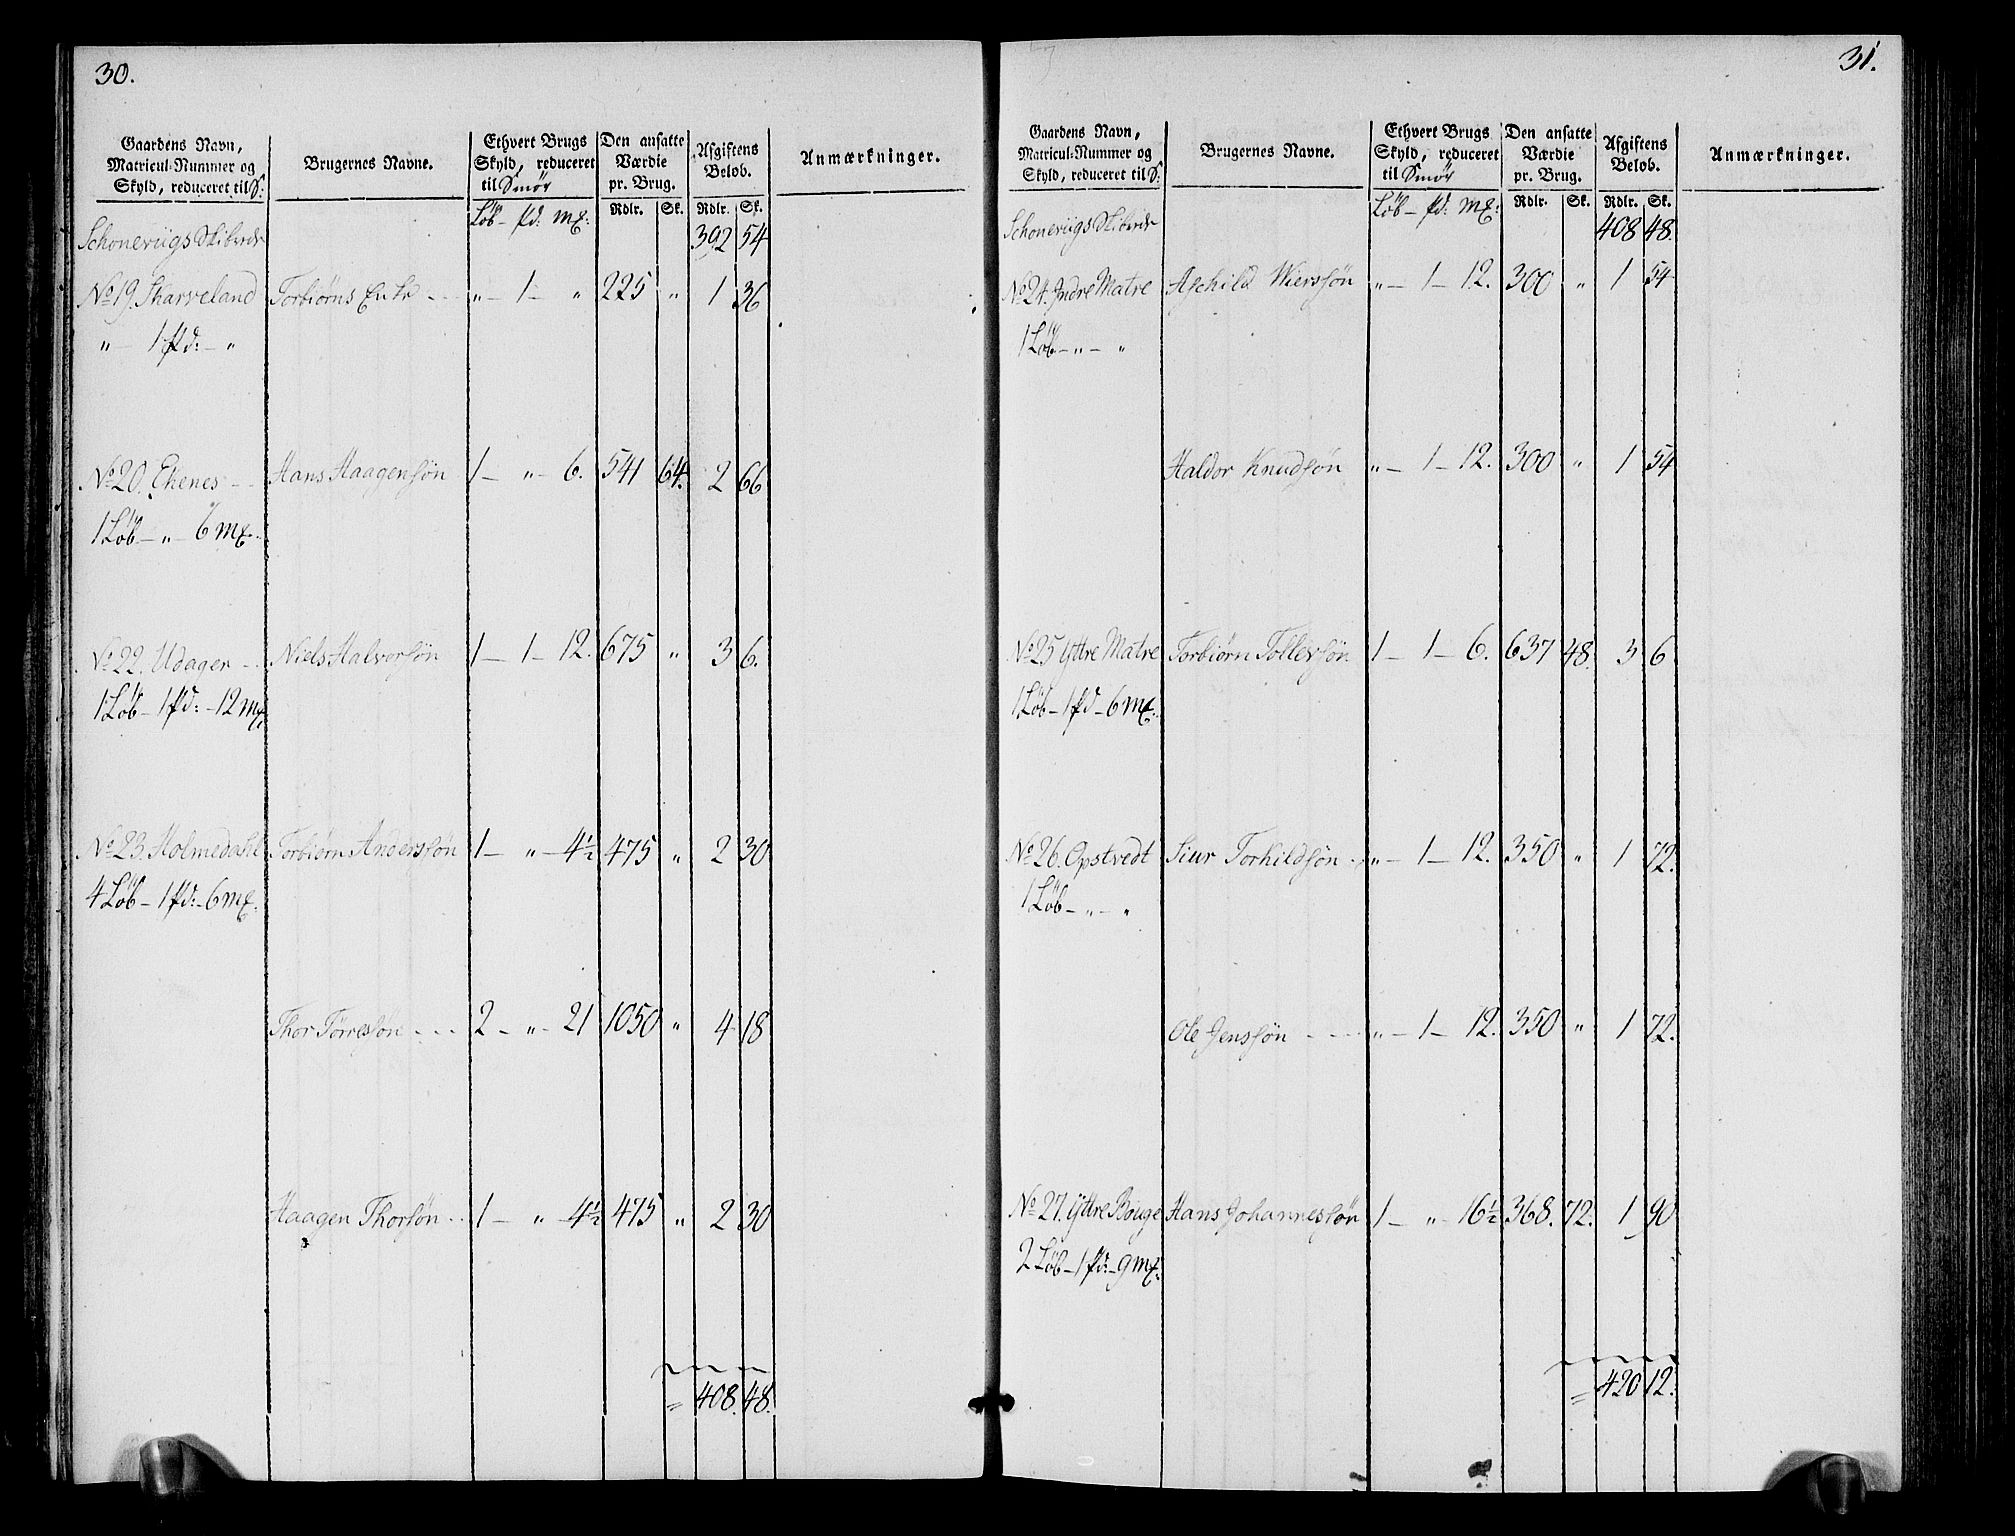 30.
Gaardens Navn, Matricul-Nummer og Skyld, reduceret til S:
Brugernes Navne.
Ethvert Brugs Skyld, reduceret til Smör
Den ansatte Værdie pr. Brug.
Afgiftens Beløb.
Anmærkninger.
Løb – pd: mk:
Rdlr. Sk. Rdlr. Sk.
Schoneviigs Skibrede 392 54
No 19. Skarveland Torbiørns Enke - - „ – 1 – „ 225 „ 1 36
„ – 1 pd: – „
No 20. Ekenes - - Hans Haagensøn 1 – „ – 6. 541 64. 2 66
1 Løb – „ – 6 mk.
No 22. Udager - - Niels Halvorsøn 1 – 1 – 12. 675 „ 3 6.
1 Løb – 1 pd: – 12 mk.
No 23. Holmedahl Torbiørn Anderssøn 1 – „ – 4½ 475 „ 2 30
4 Løb – 1 pd: – 6 mk.
Thor Tørressøn - - - 2 – „ – 21 1050 „ 4 18
Haagen Thorsøn - - 1 – „ – 4½ 475 „ 2 30
= 408. 48.
31.
Gaardens Navn, Matricul-Nummer og Skyld, reduceret til S:
Brugernes Navne.
Ethvert Brugs Skyld, reduceret til Smör
Den ansatte Værdie pr. Brug.
Afgiftens Beløb.
Anmærkninger.
Løb – pd: mk:
Rdlr. Sk. Rdlr. Sk.
Schoneviigs Skibrede 408 48.
No 24. Indre Matre Aschild Wierssøn „ – 1 – 12. 300 „ 1 54
1 Løb – „ – „
Haldor Knudsøn „ – 1 – 12. 300 „ 1 54
No 25 Yttre Matre Torbiørn Tollefsøn 1 – 1 – 6. 637 48. 3 6
1 Løb – 1 pd – 6 mk.
No 26. Opstvedt Siur Torkildsøn - „ – 1 – 12. 350 „ 1 72.
1 Løb – „ – „
Ole Jenssøn - - - „ – 1 – 12. 350 „ 1 72.
No 27. Yttre Bouge Hans Johannessøn 1 – „ 16½ 368. 72. 1 90
2 Løb – 1 pd: – 9 mk.
= 420 12.